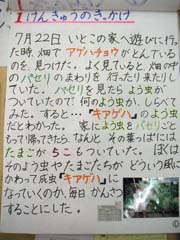 1 けんきゅうのきっかけ
7月22日いとこの家へ遊びに行っ
た時、畑でアゲハチョウがとんでいるの
を見つけた。よく見ていると畑の中
のパセリのまわりを行ったり来たりし
ていた。パセリを見たらよう虫が
ついていたので何のよう虫か、しらべて
みた。すると…『キアゲハ』のよう虫
だとわかった。家によう虫をパセリご
ともって帰ってきたら、なんとその葉っぱには
たまごが5こもついていた。ぼくは
そのよう虫やたまごたちがどういう風に
かわって成虫『キアゲハ』に
なっていくのか、毎日かんさつ
することにした。
①